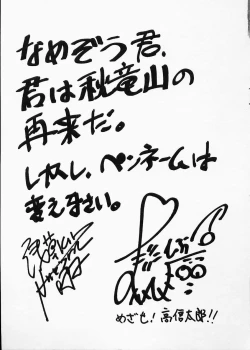 なめぞう君、
君は秋竜山の
再来だ。
しかし、ペンネームは
変えなさい。
めざせ!高信太郎!!